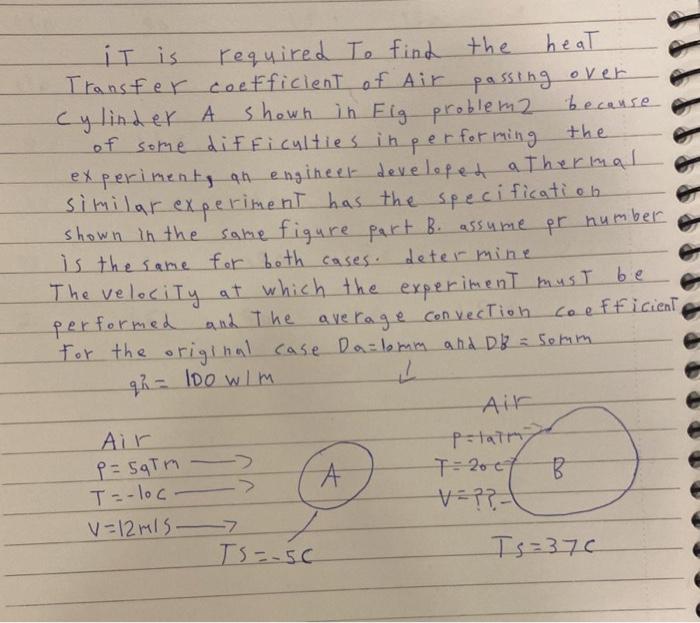 iT is required To find the heaT
Transfer coefficienT of Air passing over
cylinder A shown in Fig problem2 because
of some difficulties in performing the
experiment, an engineer developed a Thermal
similar experimenT has the specification
shown in the same figure part B. assume pr number
is the same for both cases. determine
The velociTy at which the experimenT musT be
performed and The average convecTion coefficienT
for the original case Da=10mm and DB = 50mm
q̇h = 100 w/m
Air
P=5aTm
T=-10C
V=12m/s
A
TS=-5C
Air
P=1aTm
T=20C
V=??
B
TS=37C